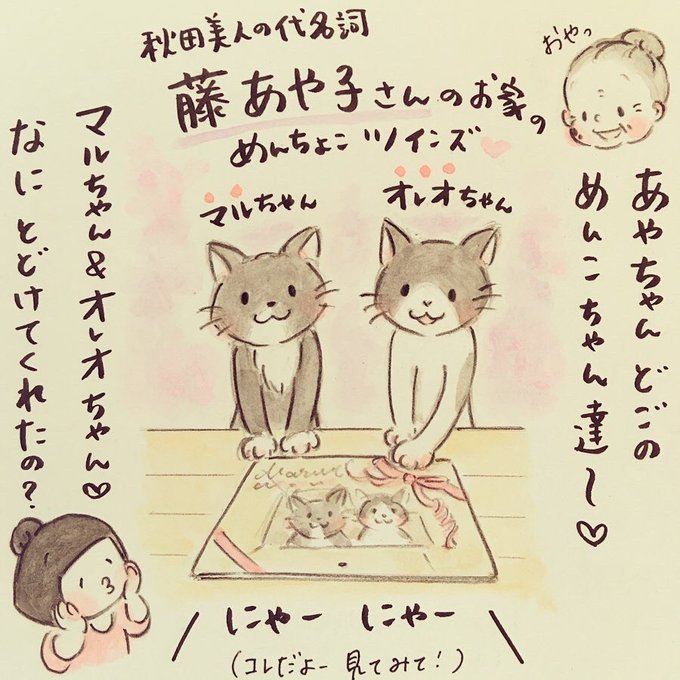 秋田美人の代名詞
藤あや子さんのお家の
めんちょこツインズ
おやっ
あやちゃんどごの
めんこちゃん達〜♡
マルちゃん
オレオちゃん
マルちゃん&オレオちゃん♡
なにとどけてくれたの?
Maru
にゃー にゃー
(コレだよー見てみて!)